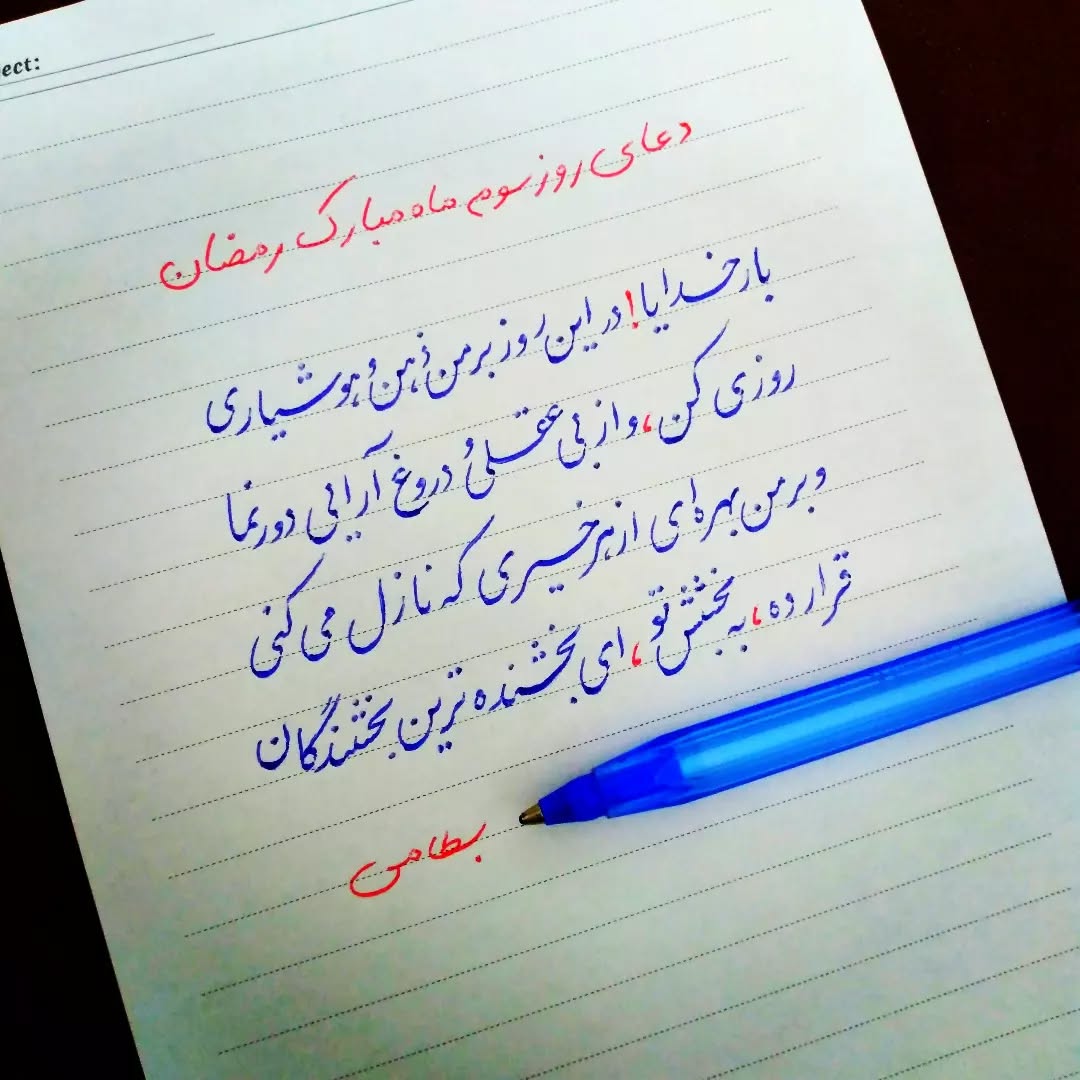 ect:
دعای روز سوم ماه مبارک رمضان
بارخدایا! در این روز بر من ذهن و هوشیاری
روزی کن، و از بی عقلی و دروغ آرایی دور نما
و بر من بهره ای از هر خیری که نازل می کنی
قرار ده، به بخشش تو، ای بخشنده ترین بخشندگان
بسطامی